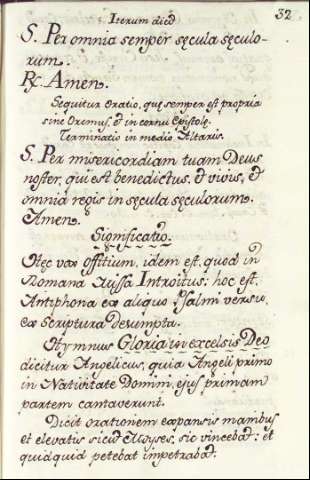 32
Iterum dicit
S. Per omnia semper sęcula sęculo-
rum.
℟. Amen.
Sequitur Oratio, quę semper est propria
sine Oremus, & in cornu Epistolę.
Terminatio in medio Altaris.
S. Per misericordiam tuam Deus
noster, qui est benedictus, & vivis, &
omnia regis in sęcula sęculorum.
Amen.
Significatio.
Hęc vox Offitium, idem est, quod in
Romana Missa Introitus: hoc est,
Antiphona ex aliquo Psalmi versu,
ex Scriptura desumpta.
Hymnus Gloria in excelsis Deo
dicitur Angelicus, quia Angeli primo
in Nativitate Domini, ejus primam
partem cantaverunt.
Dicit orationem expansis manibus
et elevatis sicut Moyses, sic vincebat: et
quidquid petebat impetrabat.